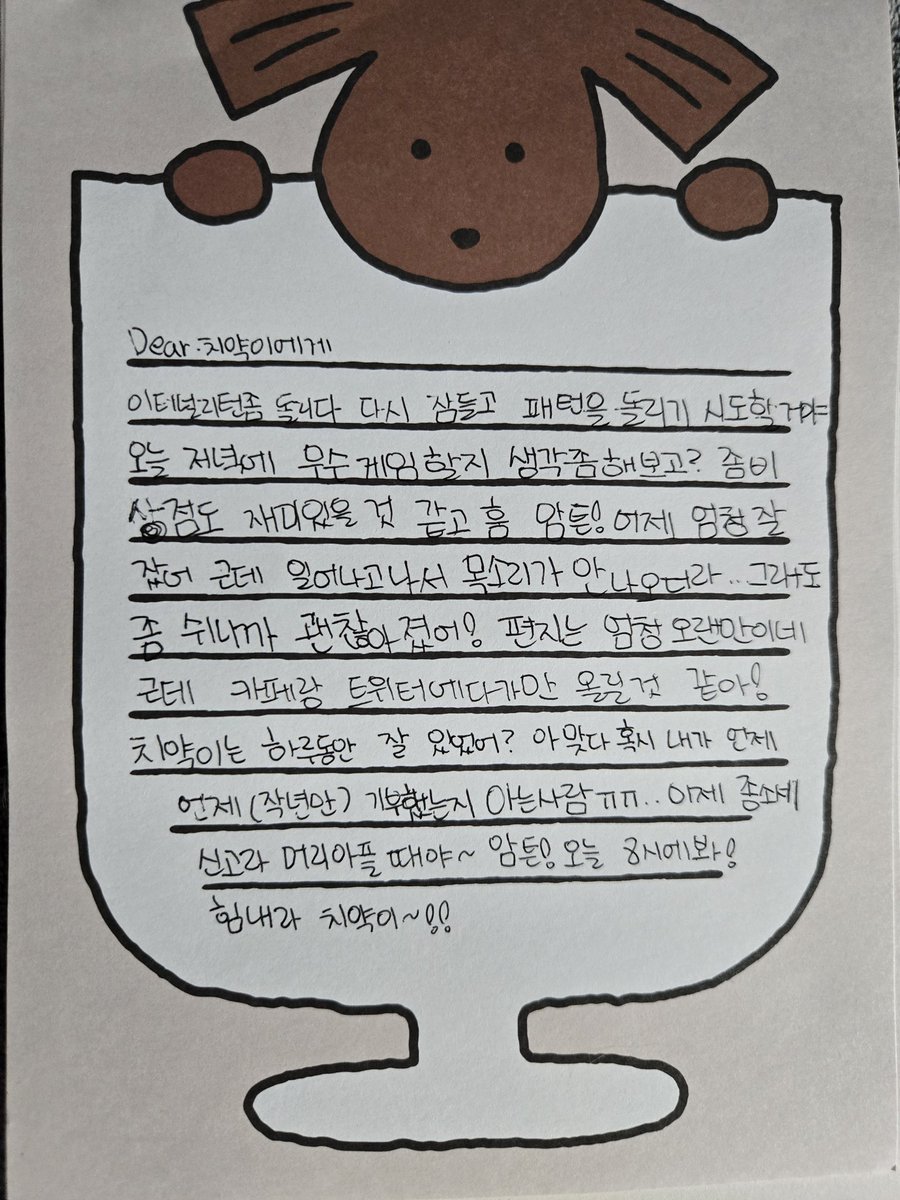 Dear.치약이에게
이터널리턴좀 돌리다 다시 잠들고 패턴을 돌리기 시도할거야
오늘 저녁에 우수게임할지 생각좀해보고? 좀비
상점도 재미있을 것 같고 흠 암튼! 어제 엄청 잘
잤어 근데 일어나고나서 목소리가 안나오더라... 그래도
좀 쉬니까 괜찮아졌어! 편지는 엄청 오랜만이네
근데 카페랑 트위터에다가만 올릴것 같아!
치약이는 하루동안 잘 있었어? 아 맞다 혹시 내가 언제
언제 (작년만) 기부했는지 아는사람 ㅠㅠ.. 이제 종소세
신고라 머리아플 때야~ 암튼! 오늘 8시에봐!
힘내라 치약이~!!